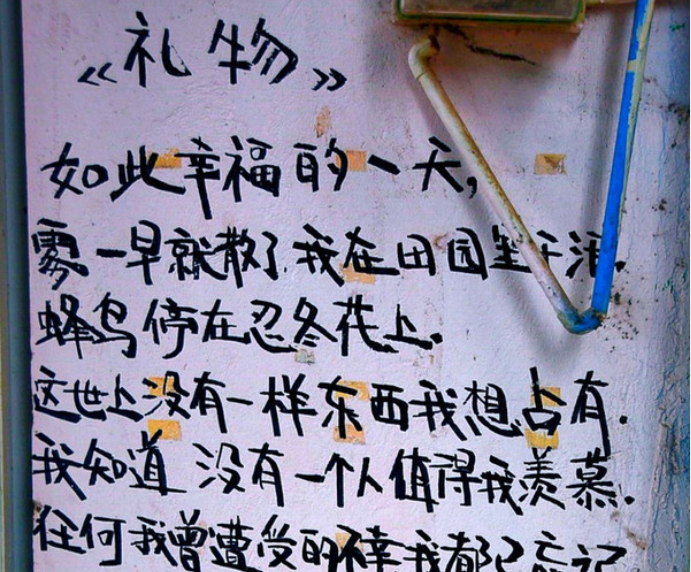 《礼物》
如此幸福的一天，
雾一早就散了.我在田园里干活.
蜂鸟停在忍冬花上.
这世上没有一样东西我想占有.
我知道 没有一个人值得我羡慕.
任何我曾遭受的不幸我都已忘记